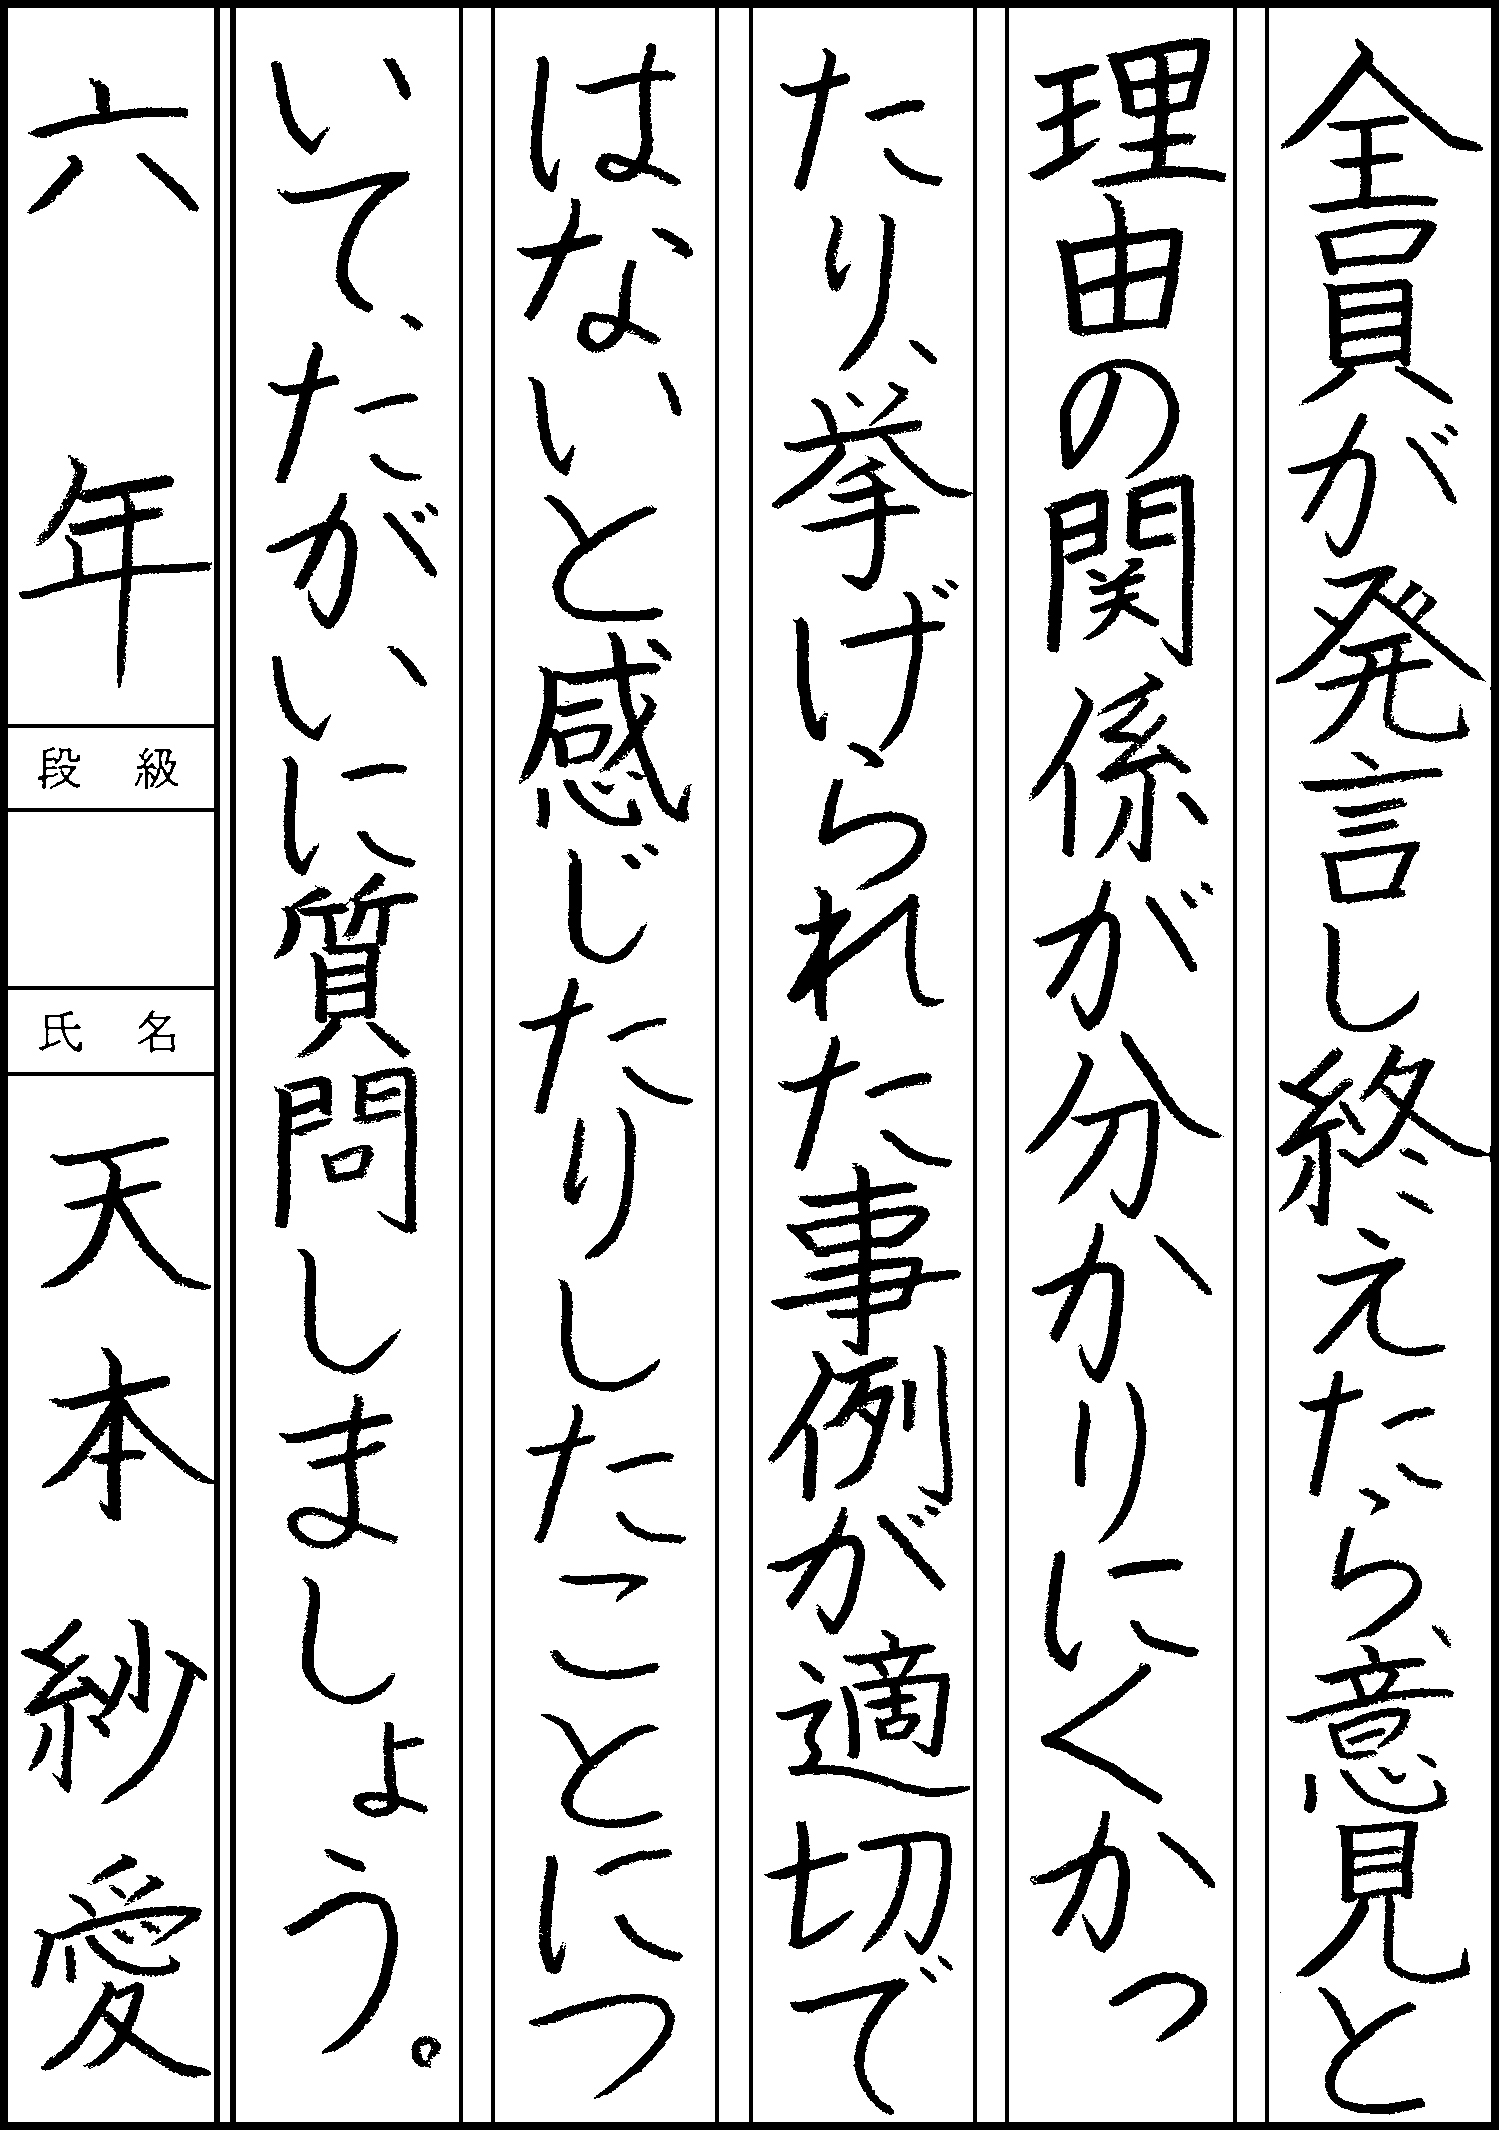 全員が発言し終えたら、意見と
理由の関係が分かりにくかっ
たり、挙げられた事例が適切で
はないと感じたりしたことにつ
いて、たがいに質問しましょう。
六年
段級
氏名
天本紗愛